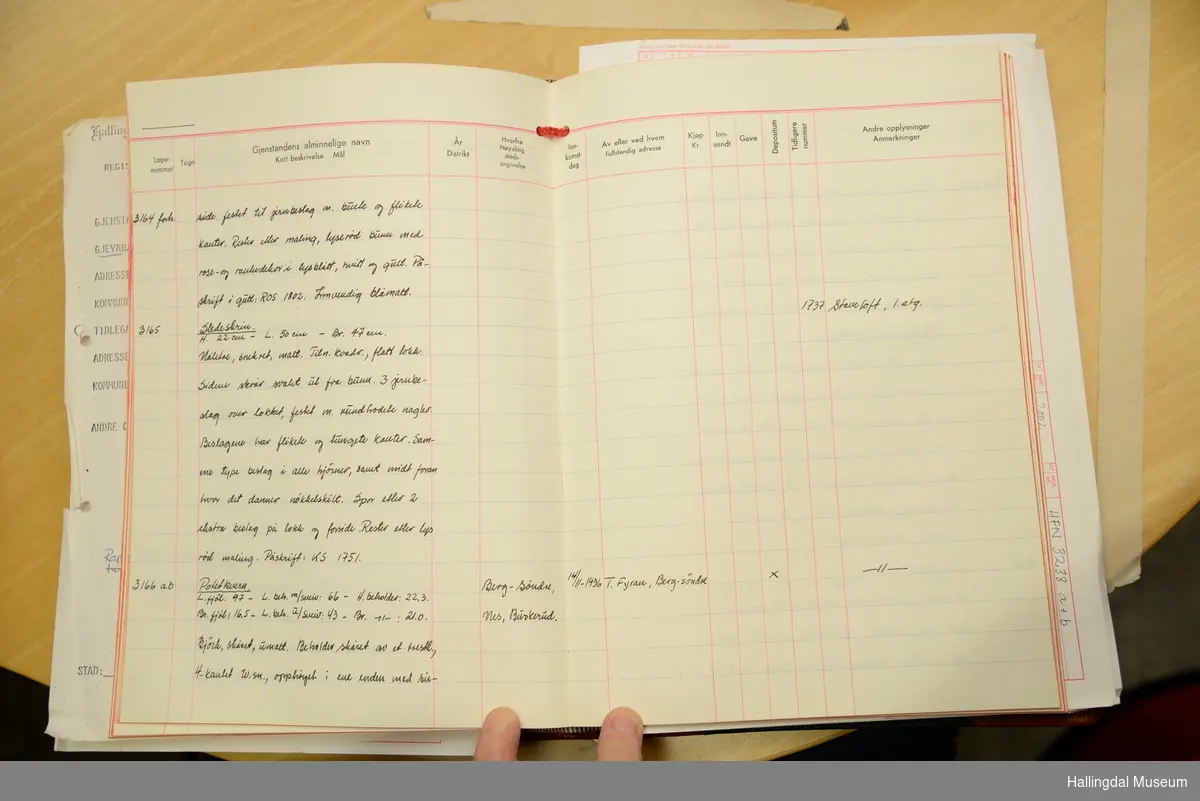 Løpe-
nummer
Tegn
Gjenstandens alminnelige navn
Kort beskrivelse Mål
År
Distrikt
Hvorfra
Nøyaktig
steds-
angivelse
Inn-
komst-
dag
Av eller ved hvem
Fullstendig adresse
Kjøp
Kr.
Inn-
sendt
Gave
Depositum
Tidligere
nummer
Andre opplysninger
Anmerkninger
3164 forts. side festet til jernbeslag m. buete og flikete
kanter. Rester etter maling, lyserød bunn med
rose- og rankedekor i lysblått, hvitt og gult. På-
skrift i gult: ROS 1802. Innvendig blåmalt.
3165 Sledeskrin. 1737 Staveloft, 1. etg.
H. 22 cm - L. 50 cm - Br. 47 cm.
Nåletre, snekret, malt. Tiln. kvadr., flatt lokk.
Sidene skrår svakt ut fra bunn. 3 jernbe-
slag over lokket, festet m. rundhodete nagler.
Beslagene har flikete og tungete kanter. Sam-
me type beslag i alle hjörner, samt midt foran
hvor det danner nökkelskilt. Spor etter 2
ekstra beslag på lokk og forside. Rester etter lys
rød maling. Påskrift: KS 1751.
3166 ab Potetkvern. Berg-Søndre, 14/11-1936 T. Fyran, Berg-söndre x —11—
L. fjöl: 97 - L. beh. m/sveiv: 66 - H. beholder: 22.3.
Br. fjöl: 16.5 - L. beh. u/sveiv: 43 - Br. -11- : 21.0. Nes, Buskerud.
Björk, skåret, umalt. Beholder skåret av et
4-kantet emne, opphöyet i ene enden med
REGI
GJENSTA
GJEVAR
ADRESSE
KOMMUNE
TIDLEGA
ADRESSE
KOMMUNE
ANDRE O
STAD:
HFN 3238 a+b
Hallingdal Museum